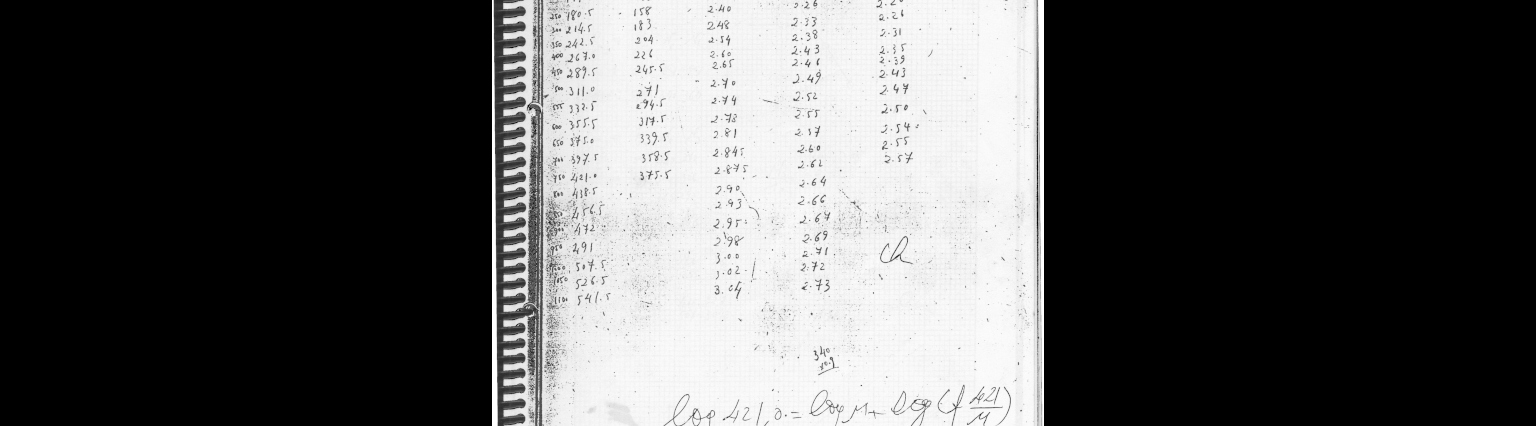 250 180.5 158 2.40 2.26 2.20
300 214.5 183 2.48 2.33 2.26
350 242.5 204 2.54 2.38 2.31
400 267.0 226 2.60 2.43 2.35
450 289.5 245.5 2.65 2.46 2.39
500 311.0 271 2.70 2.49 2.43
555 332.5 294.5 2.74 2.52 2.47
600 355.5 317.5 2.78 2.55 2.50
650 375.0 339.5 2.81 2.57 2.54
700 397.5 358.5 2.845 2.60 2.55
750 421.0 375.5 2.875 2.62 2.57
800 438.5 2.90 2.64
456.5 2.93 2.66
900 472 2.95 2.67
950 491 2.98 2.69
507.5 3.00 2.71
1050 526.5 3.02 2.72
1100 541.5 3.04 2.73
ch
340
log 421,0 =